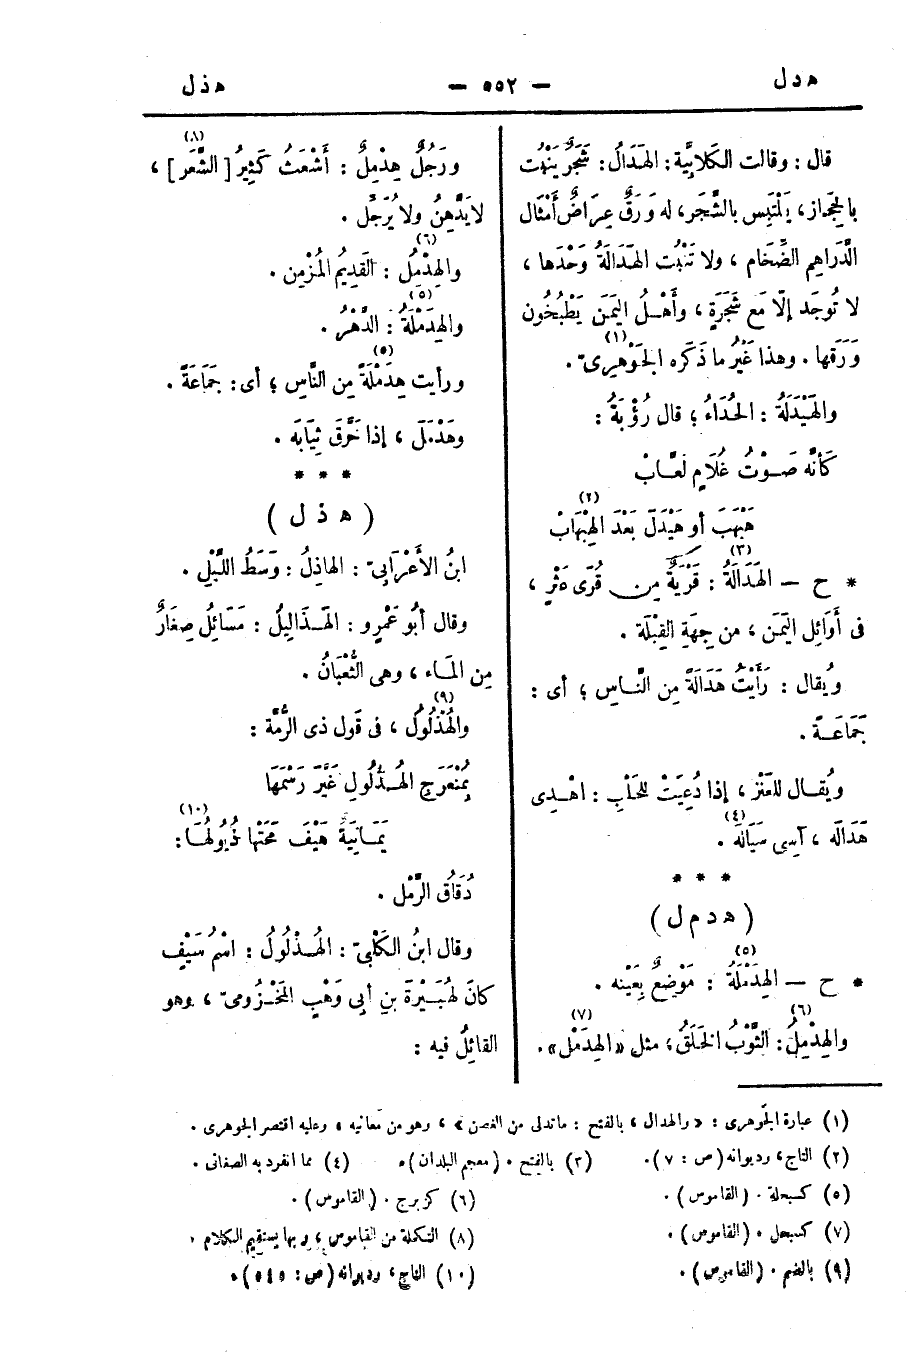 هدل
— ٥٥٢ —
هذل
قال : وقالت الكَلابيَّة : الهَدَالُ : شَجَرٌ يَنْبُت
بالحِجَاز ، يَلْتَبِس بالشَّجَر ، له وَرَقٌ عِرَاضٌ أَمْثَال
الدَّراهِم الضِّخَام ، ولا تَنْبُت الهَدَالَةُ وَحْدَها ،
لا تُوجَد إلّا مَع شَجَرَةٍ ، وأَهْلُ اليَمَن يَطْبُخُون
وَرَقَها . وهذا غَيْرُ ما ذَكَره الجَوْهَرِىّ (١) .
والهَيْدَلَةُ : الحُدَاءُ ؛ قال رُؤْبَةُ :
كَأنَّه صَوْتُ غُلَامٍ لَعَّابْ
هَبْهَبَ أو هَيْدَلَ بَعْدَ الهِبْهَابْ (٢)
* ح — الهَدَالَةُ (٣) : قَرْيَةٌ مِن قُرَى عَثْرٍ ،
فى أَوَائِل اليَمَن ، من جِهَةِ القِبْلَة .
ويُقال : رَأَيْتُ هَدَالَةً مِن النَّاس ؛ أى :
جَمَاعَةً .
ويُقال للعَنْز ، إذا دُعِيَتْ للحَلْب : اهْدِى
هَدَالَه ، آسِى سَيَالَه (٤) .
* * *
( هدمل )
* ح — الهِدَمْلَةُ (٥) : مَوْضِعٌ بِعَيْنه .
والهِدْمِلُ (٦) : الثَّوْبُ الخَلَقُ ، مثل «الهِدَمْل» (٧) .
ورَجُلٌ هِدْمِلٌ : أَشْعَثُ كَثِيرُ [ الشَّعَر ] (٨) ،
لا يَدَّهِنُ ولا يُرَجِّل .
والهِدْمِلُ (٦) : القَدِيمُ المُزْمِن .
والهِدَمْلَةُ (٥) : الدَّهْرُ .
ورأيت هِدَمْلَةً (٥) مِن النَّاسِ ؛ أى : جَمَاعَةً .
وهَدْمَلَ ، إذا خَرَّقَ ثِيَابَه .
* * *
( هذل )
ابنُ الأَعْرَابِىّ : الهاذِلُ : وَسَطُ اللَّيْلِ .
وقال أبُو عَمْرٍو : الهَذَالِيلُ : مَسَائِلُ صِغَارٌ
مِن المَاء ، وهى الثُّعْبَانُ .
والهُذْلُولُ (٩) ، فى قَول ذى الرُّمَّة :
بِمُنْعَرَجِ الهُذْلُولِ غَيَّرَ رَسْمَها
يَمَانِيَةٌ هَيْفٌ مَحَتْها ذُيُولُهَا (١٠) :
دُقَاقُ الرَّمْل .
وقال ابنُ الكَلْبِىّ : الهُذْلُولُ : اسْمُ سَيْفٍ
كانَ لهُبَيْرَةَ بنِ أبِى وَهْبٍ المَخْزُومِىّ ، وهو
القائِلُ فيه :
(١) عبارة الجَوهرى : « والهدال ، بالفتح : ماتدلى من الغصن » ، وهو من معانيه ، وعليه اقتصر الجوهرى .
(٢) التاج ، وديوانه (ص : ٧) . (٣) بالفتح . (معجم البلدان) . (٤) مما انفرد به الصغانى .
(٥) كسبحلة . (القاموس) . (٦) كزبرج . (القاموس) .
(٧) كسبحل . (القاموس) . (٨) التكملة من القاموس ، وبها يستقيم الكلام .
(٩) بالضم . (القاموس) . (١٠) التاج ، وديوانه (ص : ٥٤٥) .